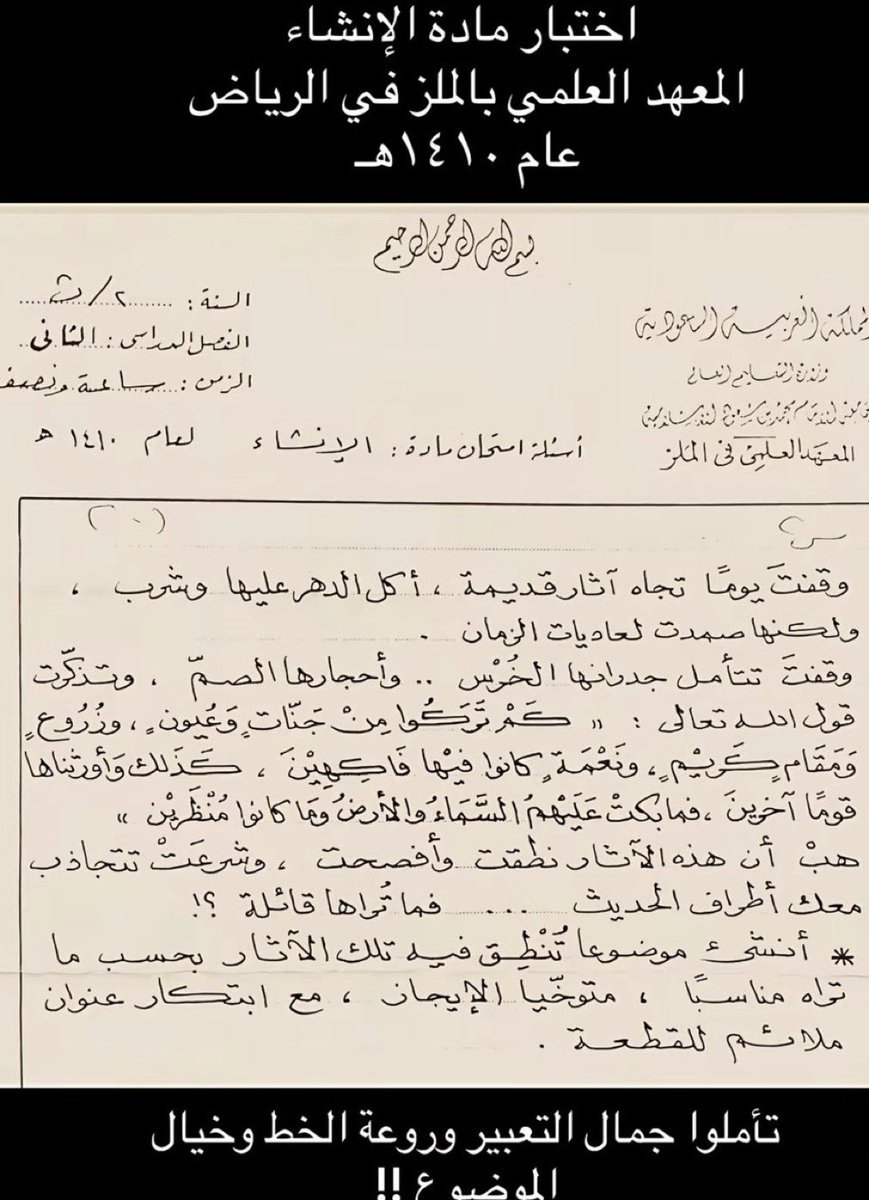 اختبار مادة الإنشاء
المعهد العلمي بالملز في الرياض
عام ١٤١٠هـ
بسم الله الرحمن الرحيم
المملكة العربية السعودية
وزارة التعليم العالي
جامعة الإمام محمد بن سعود الإسلامية
المعهد العلمي في الملز
السنة : ٢/ث
الفصل الدراسي : الثاني
الزمن : ساعة ونصف
أسئلة امتحان مادة : الإنشاء لعام ١٤١٠ هـ
وقفتَ يومًا تجاه آثار قديمة ، أكل الدهر عليها وشرب ،
ولكنها صمدت لعاديات الزمان .
وقفتَ تتأمل جدرانها الخُرْس .. وأحجارها الصمّ ، وتذكّرت
قول الله تعالى : « كَمْ تَرَكُوا مِنْ جَنَّاتٍ وَعُيُونٍ ، وَزُرُوعٍ
وَمَقَامٍ كَرِيْمٍ ، ونَعْمَةٍ كانوا فيْها فَاكِهِيْنَ ، كَذَلك وَأورثناها
قومًا آخرينَ ، فما بكتْ عَلَيْهمُ السَّمَاءُ والأرضُ ومَا كانوا مُنْظَرِيْن »
هبْ أن هذه الآثار نطقت وأفصحت ، وشرعَتْ تتجاذب
معك أطراف الحديث .... فما تُراها قائلة ؟!
* أنشئ موضوعا تُنْطِق فيه تلك الآثار بحسب ما
تراه مناسبًا ، متوخّيا الإيجاز ، مع ابتكار عنوان
ملائم للقطعة .
تأملوا جمال التعبير وروعة الخط وخيال
الموضوع !!